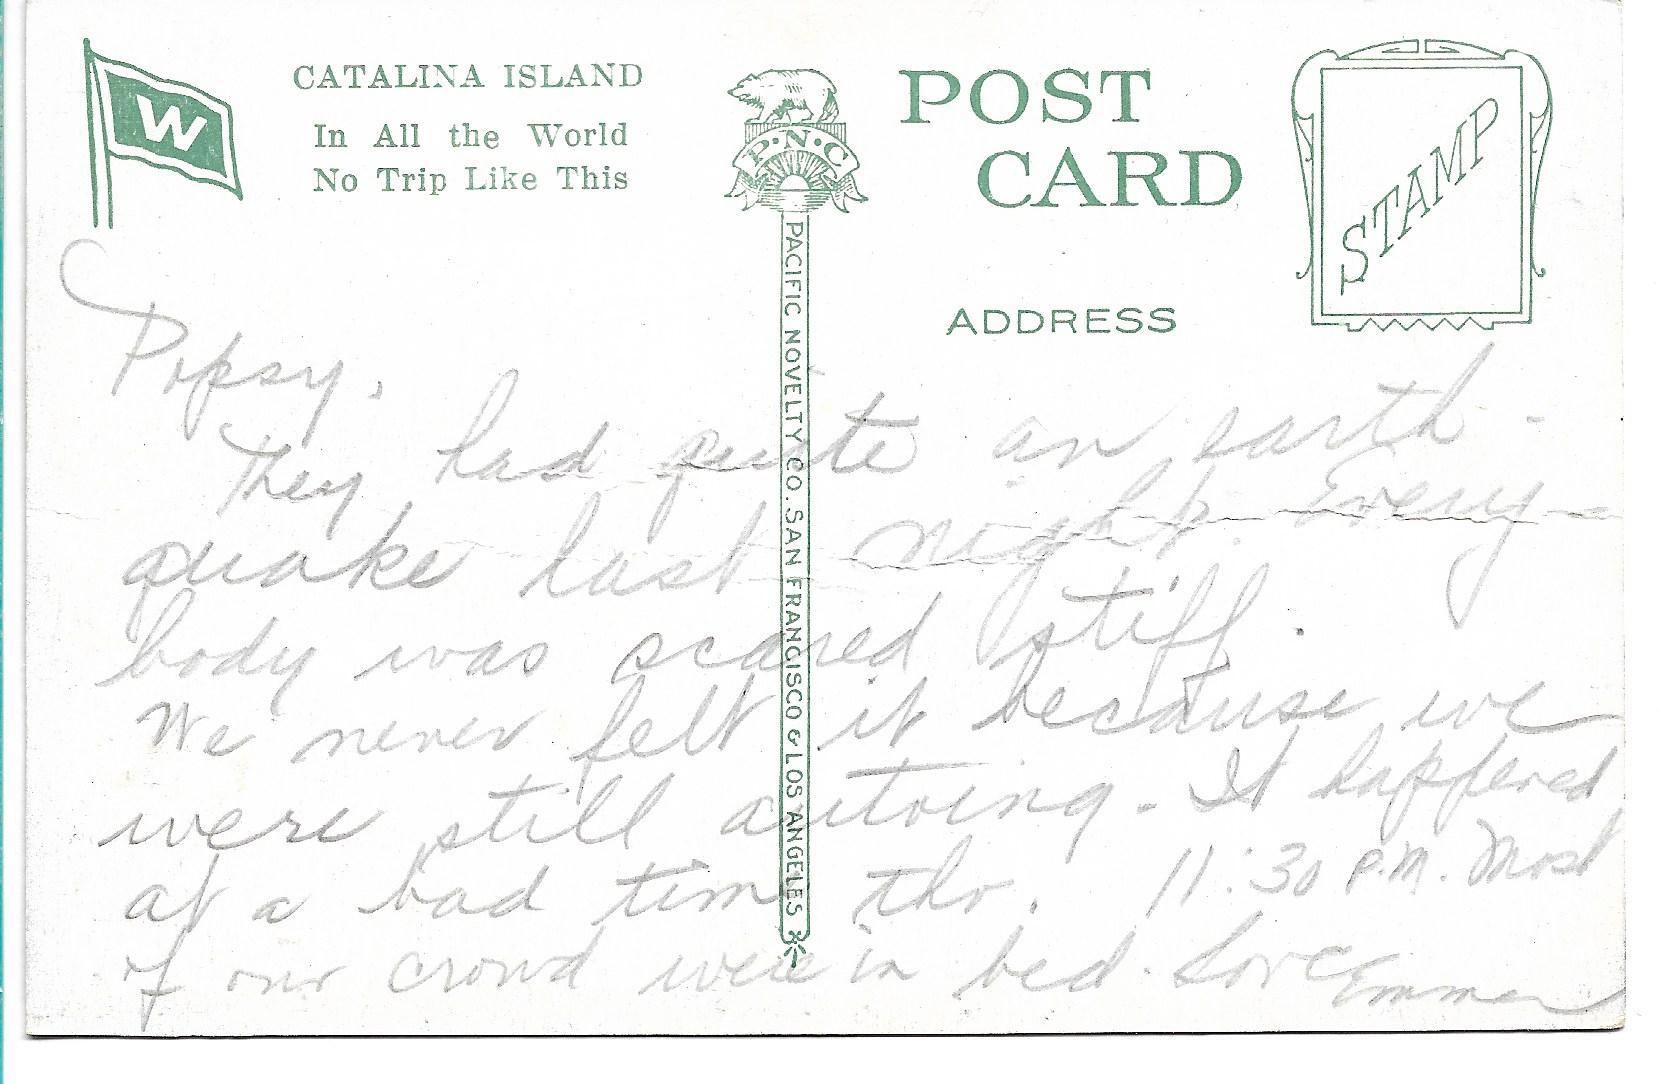 W
CATALINA ISLAND
In All the World
No Trip Like This
P·N·C
PACIFIC NOVELTY CO. SAN FRANCISCO & LOS ANGELES
POST
CARD
STAMP
ADDRESS
Popsy,
They had quite an earth-
quake last night. Every-
body was scared stiff.
We never felt it because we
were still autoing. It happened
at a bad time tho. 11:30 P.M. Most
of our crowd were in bed. Love
Emma